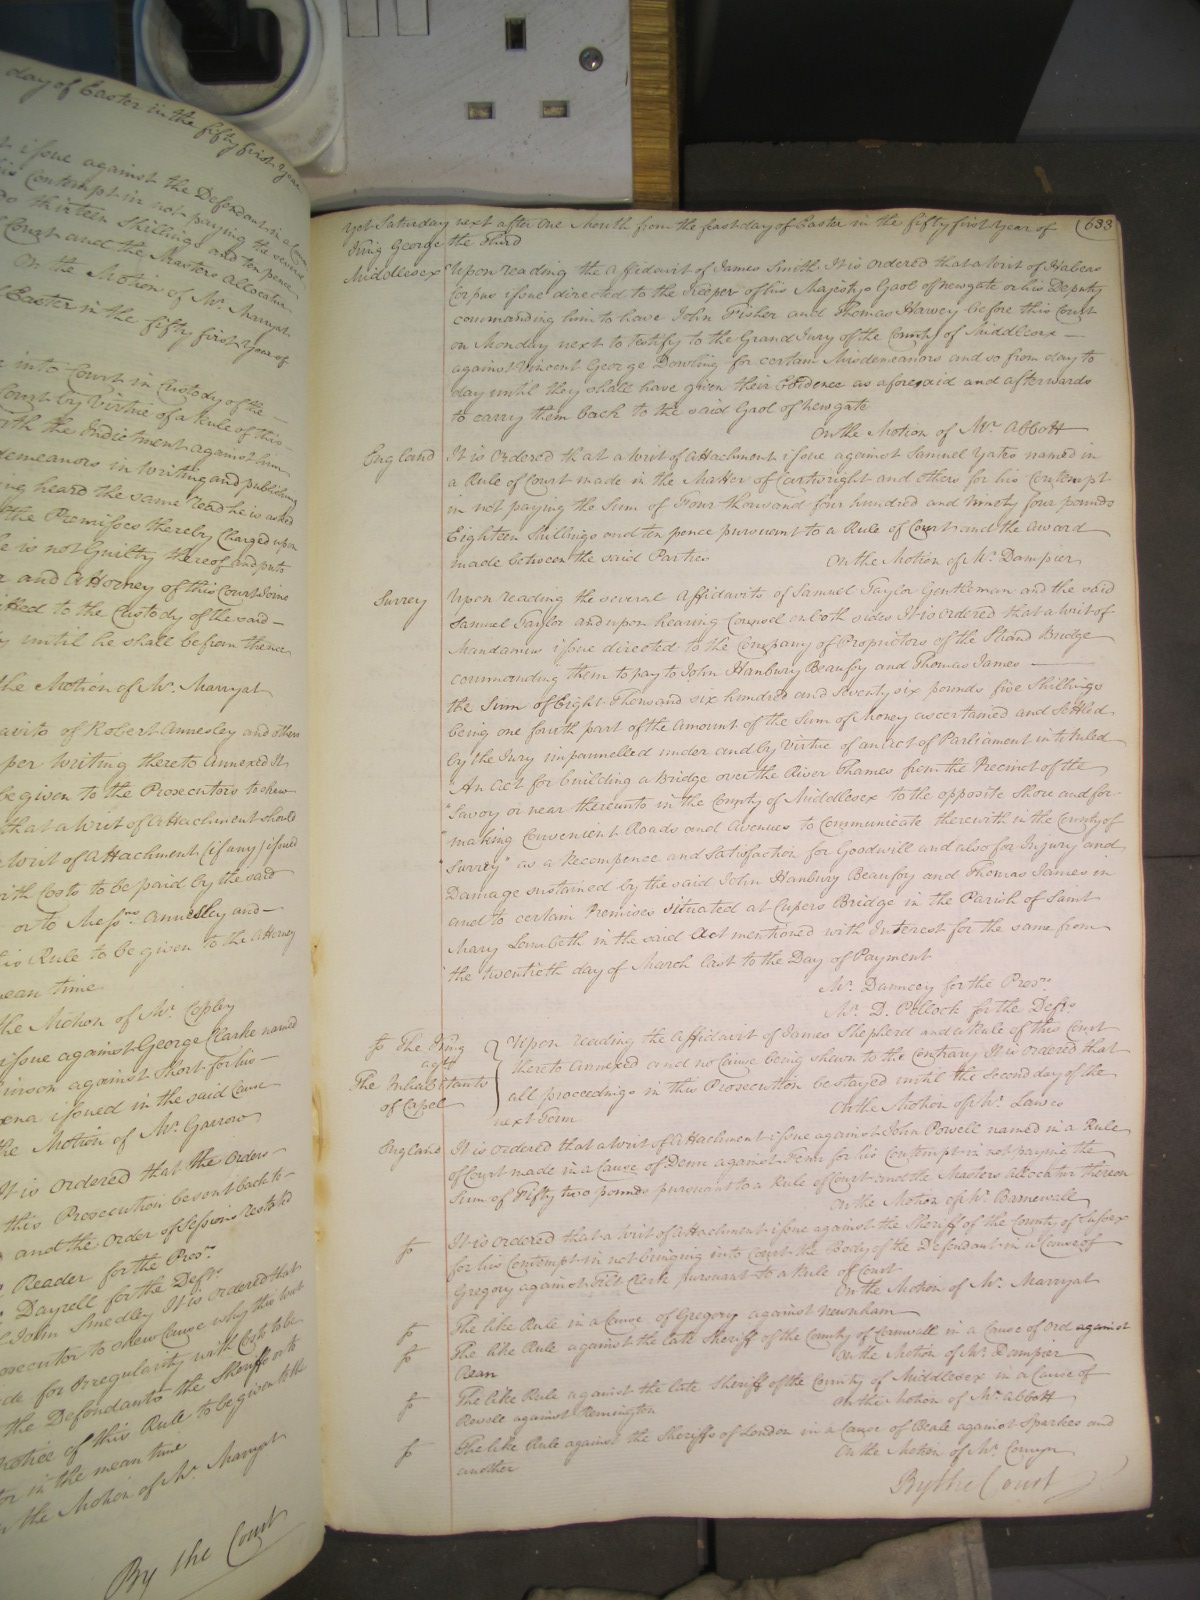 day of Easter in the fifty first year
issue against the Defendant in a Cause
his Contempt in not paying the several
thirteen Shillings and ten pence
Court and the Masters Allocatur
On the Motion of Mr. Marryat
Easter in the fifty first year of
into Court in Custody of the
Court by Virtue of a Rule of this
the Indictment against him
demeanors in writing and publishing
heard the same read he is asked
the Premisses thereby Charged upon
he is not Guilty thereof and puts
and Attorney of this Court Joins
to the Custody of the said
until he shall be from thence
the Motion of Mr. Marryat
of Robert Annesley and others
writing thereto Annexed It
be given to the Prosecutors to shew
that a Writ of Attachment should
Writ of Attachment (if any) issued
with Costs to be paid by the said
or to Messrs. Annesley and
Rule to be given to the Attorney
mean time
the Motion of Mr. Copley
issue against George Clarke named
against Short for his
issued in the said Cause
the Motion of Mr. Garrow
It is Ordered that the Orders
this Prosecution be sent back to
and the Order of Sessions restored
Reader for the Pros.
Dayrell for the Deft.
John Smedley It is Ordered that
to shew Cause why this writ
for Irregularity with Costs to be
the Defendant to the Sheriff or to
notice of this Rule to be given to the
in the mean time
the Motion of Mr. Marryat
By the Court
Yet Saturday next after One Month from the feast day of Easter in the fifty first Year of 633
King George the Third
Middlesex Upon reading the Affidavit of James Smith It is Ordered that a Writ of Habeas
Corpus issue directed to the Keeper of his Majestys Gaol of Newgate or his Deputy
commanding him to have John Fisher and Thomas Harvey before this Court
on Monday next to testify to the Grand Jury of the County of Middlesex
against Vincent George Dowling for certain Misdemeanors and so from day to
day until they shall have given their Evidence as aforesaid and afterwards
to carry them back to the said Gaol of Newgate
On the Motion of Mr. Abbott
England It is Ordered that a Writ of Attachment issue against Samuel Yates named in
a Rule of Court made in the Matter of Cartwright and Others for his Contempt
in not paying the Sum of Four thousand four hundred and ninety four pounds
Eighteen Shillings and ten pence pursuant to a Rule of Court and the Award
made between the said Parties On the Motion of Mr. Dampier
Surrey Upon reading the several Affidavits of Samuel Taylor Gentleman and the said
Samuel Taylor and upon hearing Counsel on both sides It is Ordered that a Writ of
Mandamus issue directed to the Company of Proprietors of the Strand Bridge
commanding them to pay to John Hanbury Beaufoy and Thomas James
the Sum of Eight Thousand six hundred and Seventy six pounds five Shillings
being one fourth part of the Amount of the Sum of Money ascertained and Settled
by the Jury impannelled under and by Virtue of an Act of Parliament intituled
"An Act for building a Bridge over the River Thames from the Precinct of the
"Savoy or near thereunto in the County of Middlesex to the opposite Shore and for
"making Convenient Roads and Avenues to Communicate therewith in the County of
"Surrey" as a Recompence and Satisfaction for Goodwill and also for Injury and
Damage sustained by the said John Hanbury Beaufoy and Thomas James in
and to certain Premises situated at Cupers Bridge in the Parish of Saint
Mary Lambeth in the said Act mentioned with Interest for the same from
the twentieth day of March last to the Day of Payment
Mr. Dauncey for the Pros.
Mr. D. Pollock for the Defts.
fs The King
agt
The Inhabitants
of Capel
Upon reading the Affidavit of James Shepherd and a Rule of this Court
hereto Annexed and no Cause being shewn to the Contrary It is Ordered that
all proceedings in this Prosecution be stayed until the Second day of the
next Term On the Motion of Mr. Lawes
England It is Ordered that a Writ of Attachment issue against John Powell named in a Rule
of Court made in a Cause of Denn against Fenn for his Contempt in not paying the
Sum of Fifty two pounds pursuant to a Rule of Court and the Masters Allocatur thereon
On the Motion of Mr. Barnewall
fs It is Ordered that a Writ of Attachment issue against the Sheriff of the County of Sussex
for his Contempt in not bringing into Court the Body of the Defendant in a Cause of
Gregory against Tilt Clerk pursuant to a Rule of Court
On the Motion of Mr. Marryat
fs The like Rule in a Cause of Gregory against Newnham
fs The like Rule against the late Sheriff of the County of Cornwall in a Cause of Ord against
Rean On the Motion of Mr. Dampier
fs The like Rule against the late Sheriff of the County of Middlesex in a Cause of
Rowell against Remington On the Motion of Mr. Abbott
fs The like Rule against the Sheriffs of London in a Cause of Beale against Sparkes and
another On the Motion of Mr. Comyn
By the Court